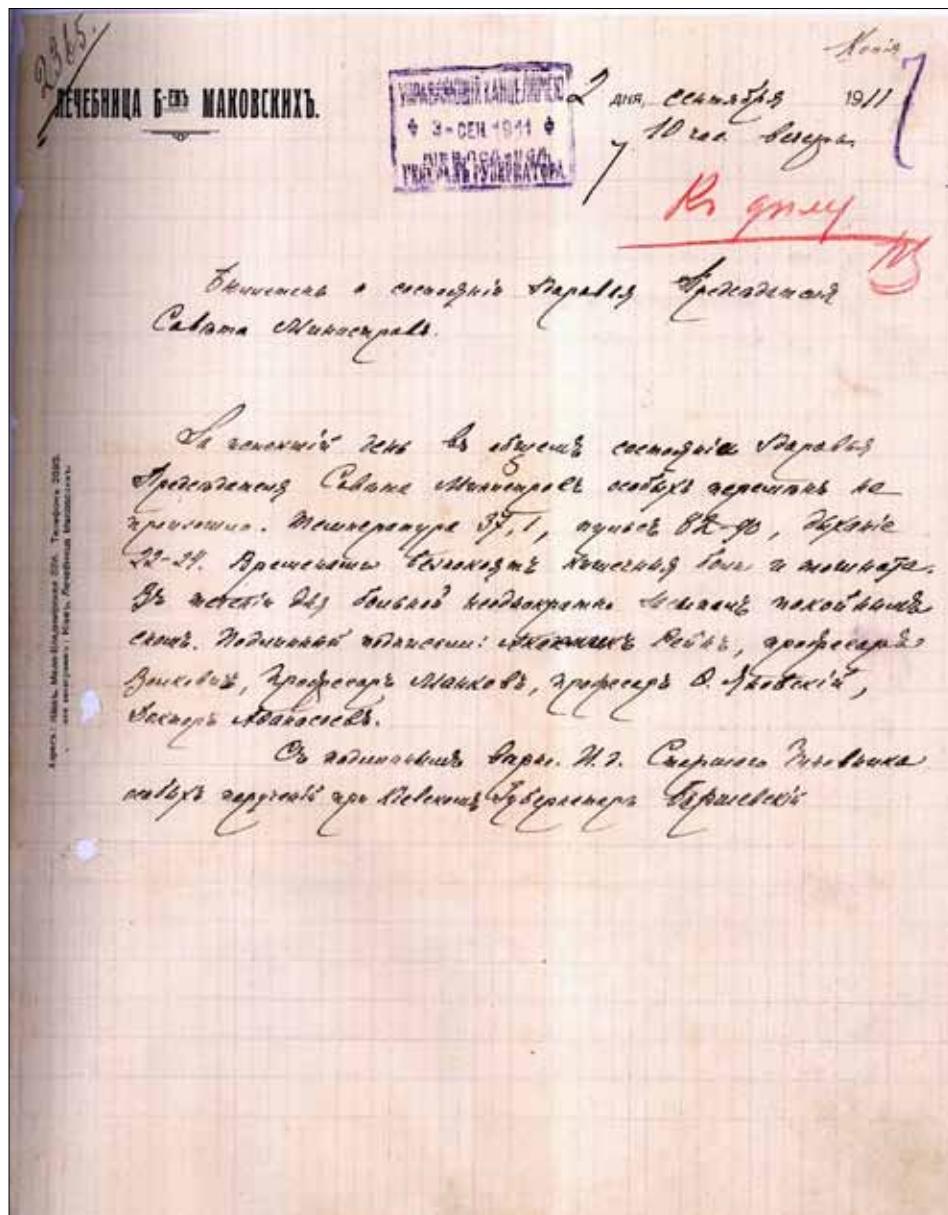 2365.
Копія
ЛЕЧЕБНИЦА Б-евъ МАКОВСКИХЪ.
УПРАВЛЯЮЩІЙ КАНЦЕЛЯРІЕЮ
3-СЕН 1911
ГЕНЕРАЛЪ ГУБЕРНАТОРА
2 дня, сентября 1911
10 час. вечера
Къ дѣлу
Бюллетень о состояніи здоровья Предсѣдателя
Совѣта Министровъ.
За истекшій день въ общемъ состояніи здоровья
Предсѣдателя Совѣта Министровъ особыхъ перемѣнъ не
произошло. Температура 37,1, пульсъ 82-90, дыханіе
22-24. Временами безпокоятъ кишечныя боли и тошнота.
Въ теченіи дня больной неоднократно засыпалъ покойнымъ
сномъ. Подлинный подписали: Академикъ Рейнъ, профессоръ
Волковичъ, Профессоръ Малковъ, профессоръ Ѳ. Яновскій,
Докторъ Афанасьевъ.
Съ подлиннымъ вѣрно. И.д. Старшаго Чиновника
особыхъ порученій при Кіевскомъ Губернаторѣ
Адресъ: Кіевъ, Мало-Владимірская 33. Телефонъ 2090.
Кіевъ, Лечебница Маковскихъ.